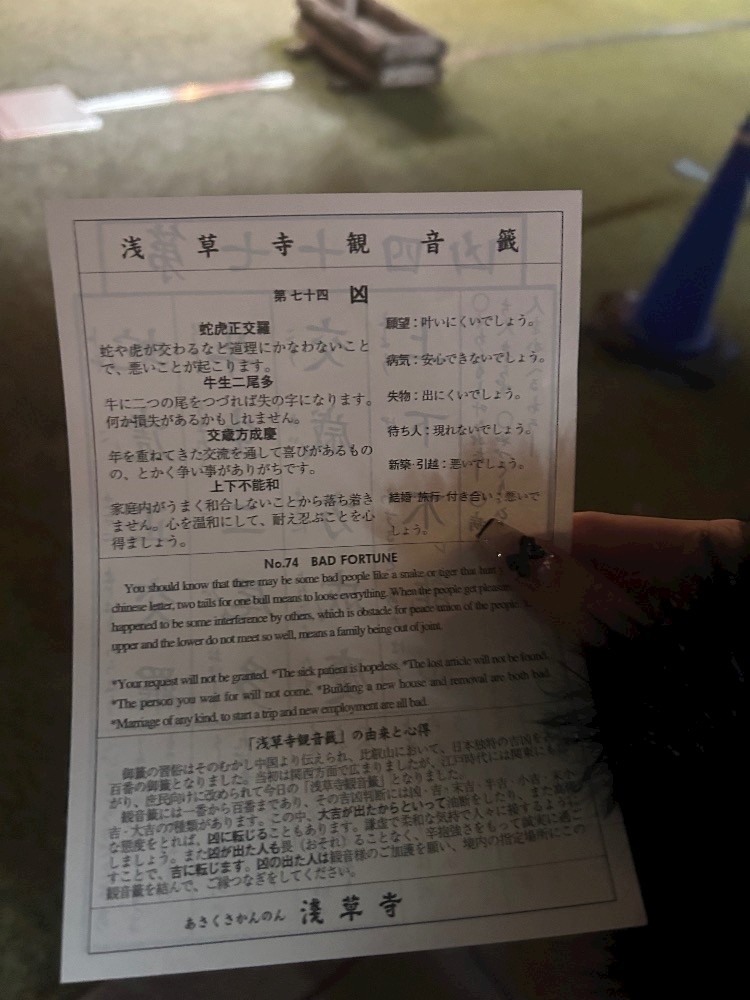 浅草寺観音籤
第七十四 凶
蛇虎正交羅
蛇や虎が交わるなど道理にかなわないこと
で、悪いことが起こります。
牛生二尾多
牛に二つの尾をつづれば失の字になります。
何か損失があるかもしれません。
交歳方成慶
年を重ねてきた交流を通して喜びがあるもの
の、とかく争い事がありがちです。
上下不能和
家庭内がうまく和合しないことから落ち着き
ません。心を温和にして、耐え忍ぶことを心
得ましょう。
願望：叶いにくいでしょう。
病気：安心できないでしょう。
失物：出にくいでしょう。
待ち人：現れないでしょう。
新築・引越：悪いでしょう。
結婚・旅行・付き合い：悪いで
しょう。
No.74 BAD FORTUNE
You should know that there may be some bad people like a snake or tiger that hurt
chinese letter, two tails for one bull means to loose everything. When the people get
happened to be some interference by others, which is obstacle for peace union of the people.
upper and the lower do not meet so well, means a family being out of joint.
*Your request will not be granted. *The sick patient is hopeless. *The lost article will not be found.
*The person you wait for will not come. *Building a new house and removal are both bad.
*Marriage of any kind, to start a trip and new employment are all bad.
「浅草寺観音籤」の由来と心得
御籤の習俗はそのむかし中国より伝えられ、比叡山において、日本独特の吉凶を
百番の御籤となりました。当初は関西方面で広まりましたが、江戸時代には関東にも
がり、庶民向けに改められて今日の「浅草寺観音籤」となりました。
観音籤には一番から百番まであり、その吉凶判断には凶・吉・末吉・半吉・小吉・末小
吉・大吉の7種類があります。この中、大吉が出たからといって油断をしたり、また高慢
な態度をとれば、凶に転じることもあります。謙虚で柔和な気持で人々に接するように
しましょう。また凶が出た人も畏（おそれ）ることなく、辛抱強さをもって誠実に過ご
すことで、吉に転じます。凶の出た人は観音様のご加護を願い、境内の指定場所にこの
観音籤を結んで、ご縁つなぎをしてください。
あさくさかんのん 浅草寺